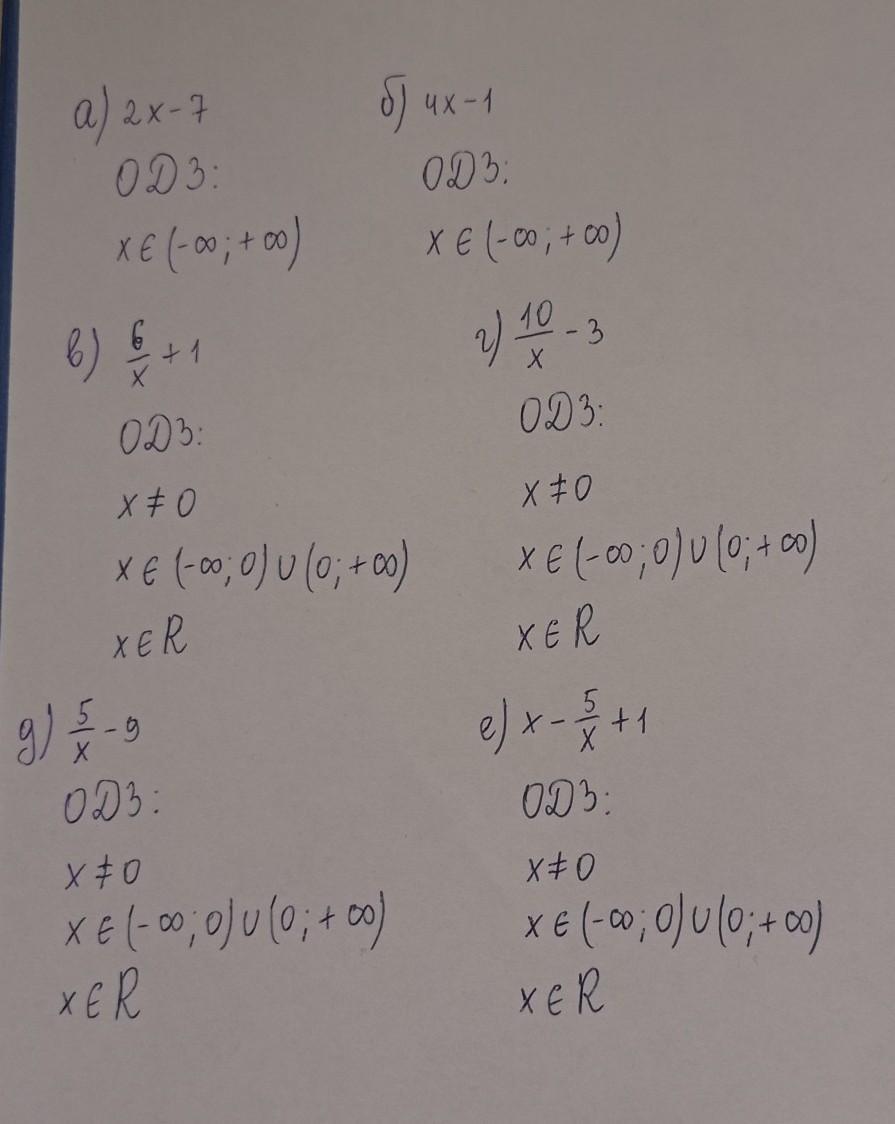 а) 2x-7
ОДЗ:
x∈(-∞;+∞)
б) 4x-1
ОДЗ:
x∈(-∞;+∞)
в) 6/x+1
ОДЗ:
x≠0
x∈(-∞;0)∪(0;+∞)
x∈R
г) 10/x-3
ОДЗ:
x≠0
x∈(-∞;0)∪(0;+∞)
x∈R
д) 5/x-9
ОДЗ:
x≠0
x∈(-∞;0)∪(0;+∞)
x∈R
е) x-5/x+1
ОДЗ:
x≠0
x∈(-∞;0)∪(0;+∞)
x∈R